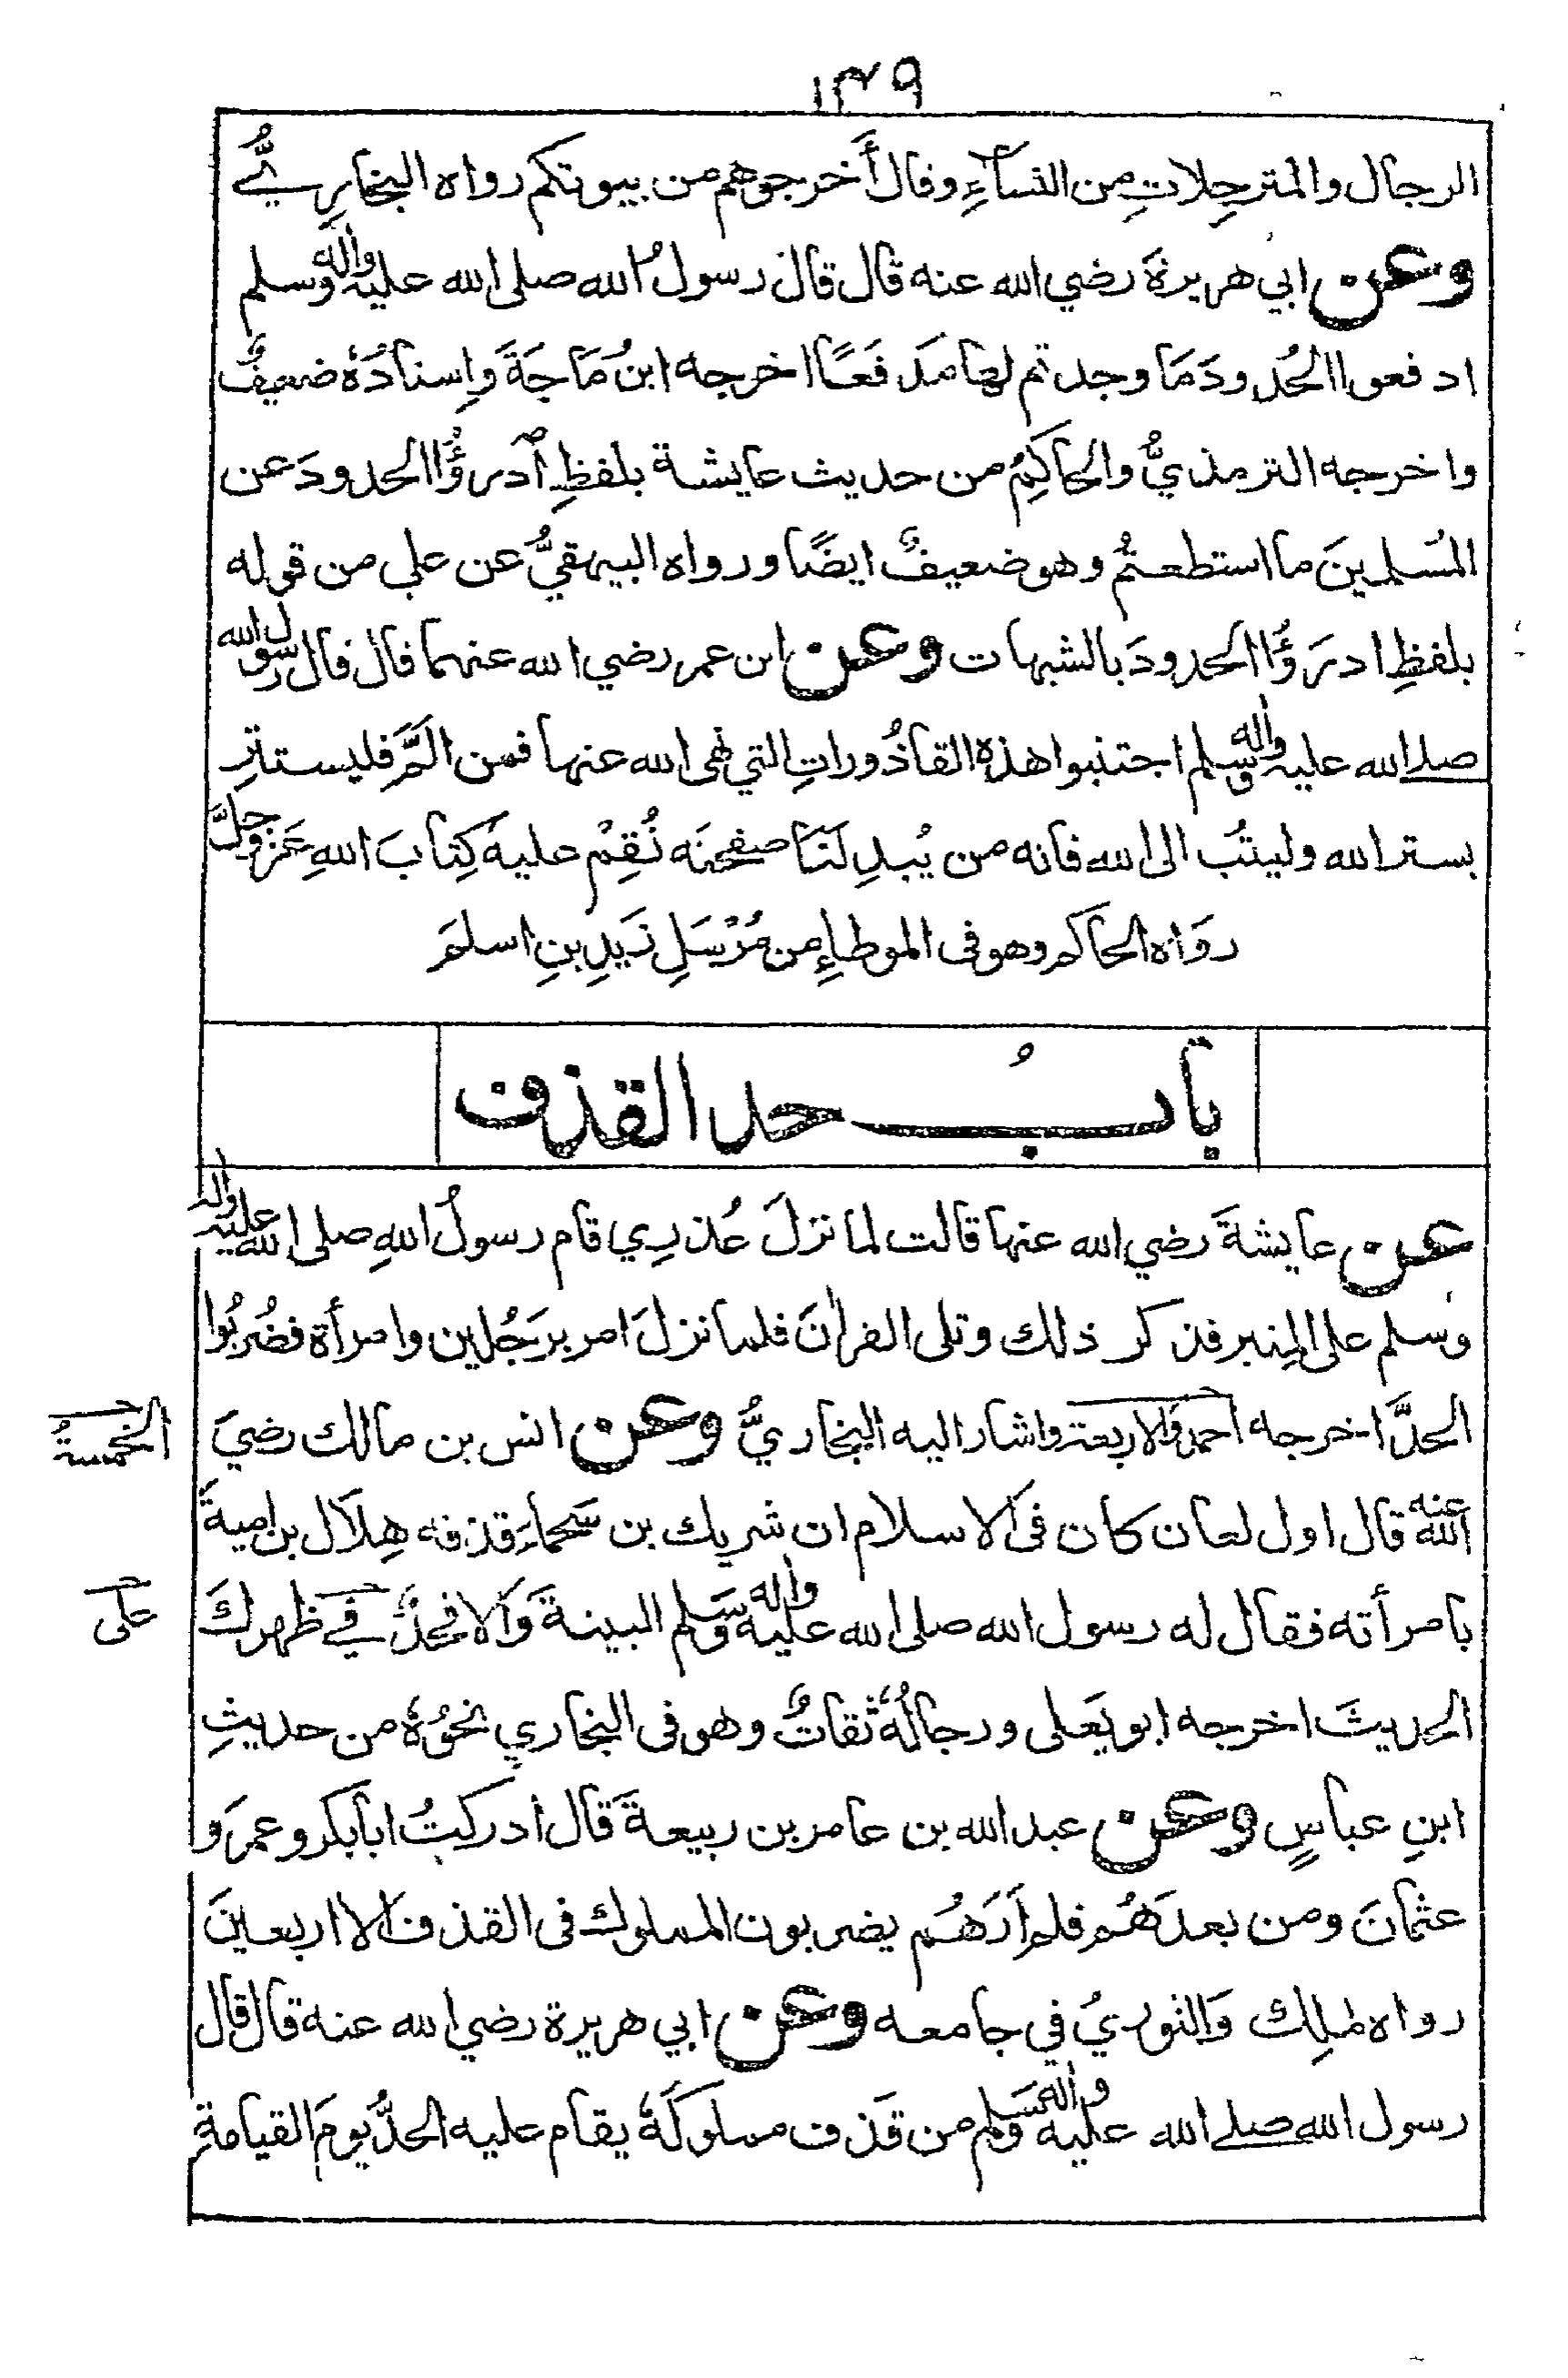 ١٣٩
الرجال والمترجِلاتِ من النسآءِ وقال أَخرجوهم من بيوتكم رواه البخاريُّ
وعن ابي هريرةَ رضي الله عنه قال قال رسولُ الله صلى الله عليه واٰله وسلم
ادفعوا الحُدودَ مَا وجدتم لها مَدفَعًا اخرجه ابنُ مَاجَةَ وَاِسنادُهٗ ضعيفٌ
واخرجه الترمذيُّ والحاكِمُ من حديث عايشة بلفظِ اَدرؤُا الحدودَ عن
المُسلمينَ ما استطعتُم وهو ضعيفٌ ايضًا ورواه البيهقيُّ عن علي من قوله
بلفظِ ادرَؤُا الحدودَ بالشبهات وعن ابن عمر رضي الله عنهما قال قال رسول الله
صلى الله عليه واٰله وسلم اجتنبوا هذه القاذُوراتِ التي نهى الله عنها فمن اَلَمَّ فليستتِر
بستر الله وليتُب الى الله فانه من يُبدِ لَنَا صفحتَه نُقِمْ عليه كِتابَ اللهِ عَزوجلَّ
روَاه الحاكم وهو فى الموطاءِ من مُرْسَلِ زَيدِ بنِ اسلمَ
بابُ حد القذف
عن عايشةَ رضي الله عنها قالت لما نزلَ عُذرِي قام رسولُ اللهِ صلى الله عليه واله
وسلم على المِنبر فذكر ذلك وتلى القراٰنَ فلما نزلَ امر برَجُلين وامرأة فضُربُوا
الحدَّ اخرجه احمد والاربعة واشار اليه البخاريُّ وعن انس بن مالك رضيَ
الخمسةُ
الله عنه قال اول لعان كان فى الاسلام ان شريك بن سَحماءَ قذفه هِلاَل بن اميةَ
بامرأته فقال له رسول الله صلى الله عليه واٰله وسلم البينةَ وَالا فحدٌّ في ظهرِكَ
على
الحديثَ اخرجه ابو يَعلى ورجالُهٗ ثقاتٌ وهو فى البخاري نحوُهٗ من حديثِ
ابنِ عباسٍ وعن عبد الله بن عامر بن ربيعةَ قال ادركتُ ابا بكر وعمرَ و
عثمانَ ومن بعدَهُم فلم اَرَهُم يضربون المملوك فى القذف الا اربعينَ
رواه مٰلِك وَالثوريُ في جامعه وعن ابي هريرة رضي الله عنه قال قال
رسول الله صلى الله عليه واٰله وسلم من قَذف مملوكَهٗ يقام عليه الحدُّ يومَ القيامةِ